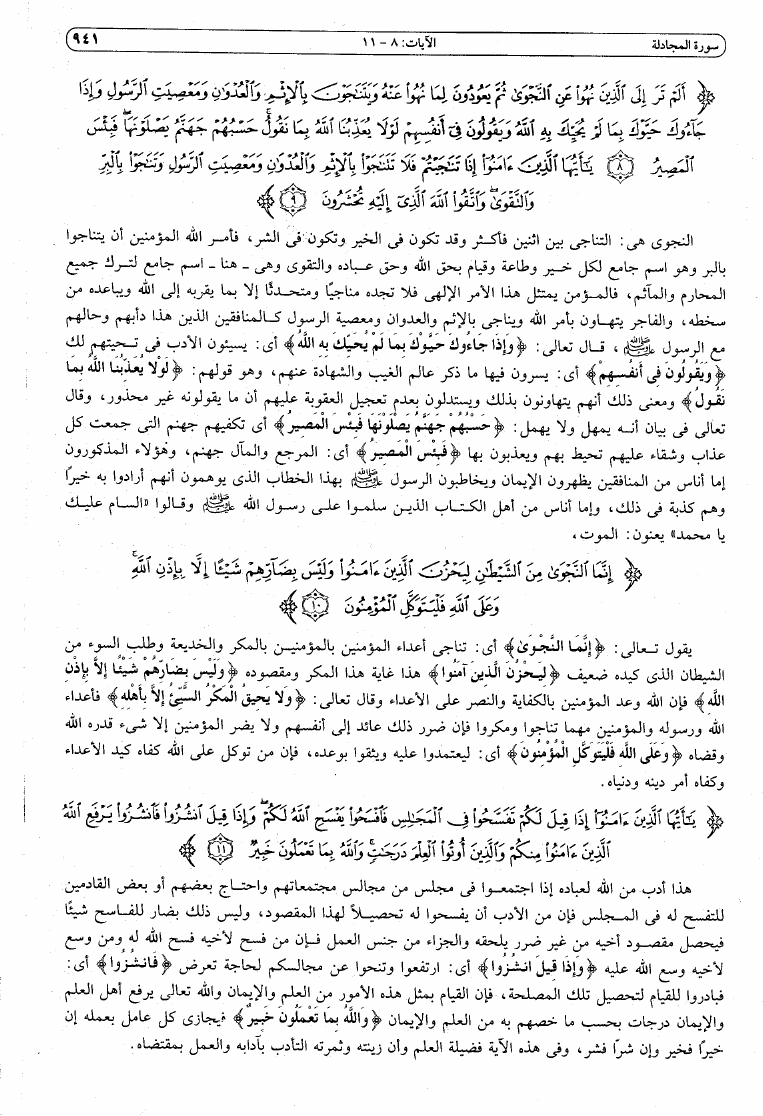 سورة المجادلة الآيات: ٨ - ١١ ٩٤١
﴿ أَلَمْ تَرَ إِلَى ٱلَّذِينَ نُهُوا۟ عَنِ ٱلنَّجْوَىٰ ثُمَّ يَعُودُونَ لِمَا نُهُوا۟ عَنْهُ وَيَتَنَٰجَوْنَ بِٱلْإِثْمِ وَٱلْعُدْوَٰنِ وَمَعْصِيَتِ ٱلرَّسُولِ وَإِذَا
جَآءُوكَ حَيَّوْكَ بِمَا لَمْ يُحَيِّكَ بِهِ ٱللَّهُ وَيَقُولُونَ فِىٓ أَنفُسِهِمْ لَوْلَا يُعَذِّبُنَا ٱللَّهُ بِمَا نَقُولُ ۚ حَسْبُهُمْ جَهَنَّمُ يَصْلَوْنَهَا ۖ فَبِئْسَ
ٱلْمَصِيرُ ٨ يَٰٓأَيُّهَا ٱلَّذِينَ ءَامَنُوٓا۟ إِذَا تَنَٰجَيْتُمْ فَلَا تَتَنَٰجَوْا۟ بِٱلْإِثْمِ وَٱلْعُدْوَٰنِ وَمَعْصِيَتِ ٱلرَّسُولِ وَتَنَٰجَوْا۟ بِٱلْبِرِّ
وَٱلتَّقْوَىٰ ۖ وَٱتَّقُوا۟ ٱللَّهَ ٱلَّذِىٓ إِلَيْهِ تُحْشَرُونَ ٩ ﴾
النجوى هى: التناجى بين اثنين فأكثر وقد تكون فى الخير وتكون فى الشر، فأمر الله المؤمنين أن يتناجوا
بالبر وهو اسم جامع لكل خير وطاعة وقيام بحق الله وحق عباده والتقوى وهى ـ هنا ـ اسم جامع لترك جميع
المحارم والمآثم، فالمؤمن يمتثل هذا الأمر الإلهى فلا تجده مناجيًا ومتحدثًا إلا بما يقربه إلى الله ويباعده من
سخطه، والفاجر يتهاون بأمر الله ويناجى بالإثم والعدوان ومعصية الرسول كالمنافقين الذين هذا دأبهم وحالهم
مع الرسول ﷺ، قال تعالى: ﴿وَإِذَا جَاءُوكَ حَيَّوْكَ بِمَا لَمْ يُحَيِّكَ بِهِ اللَّهُ﴾ أى: يسيئون الأدب فى تحيتهم لك
﴿وَيَقُولُونَ فِى أَنفُسِهِمْ﴾ أى: يسرون فيها ما ذكر عالم الغيب والشهادة عنهم، وهو قولهم: ﴿لَوْلا يُعَذِّبُنَا اللَّهُ بِمَا
نَقُولُ﴾ ومعنى ذلك أنهم يتهاونون بذلك ويستدلون بعدم تعجيل العقوبة عليهم أن ما يقولونه غير محذور، وقال
تعالى فى بيان أنه يمهل ولا يهمل: ﴿حَسْبُهُمْ جَهَنَّمُ يَصْلَوْنَهَا فَبِئْسَ الْمَصِيرُ﴾ أى تكفيهم جهنم التى جمعت كل
عذاب وشقاء عليهم تحيط بهم ويعذبون بها ﴿فَبِئْسَ الْمَصِيرُ﴾ أى: المرجع والمآل جهنم، وهؤلاء المذكورون
إما أناس من المنافقين يظهرون الإيمان ويخاطبون الرسول ﷺ بهذا الخطاب الذى يوهمون أنهم أرادوا به خيرًا
وهم كذبة فى ذلك، وإما أناس من أهل الكتاب الذين سلموا على رسول الله ﷺ وقالوا «السام عليك
يا محمد» يعنون: الموت،
﴿ إِنَّمَا ٱلنَّجْوَىٰ مِنَ ٱلشَّيْطَٰنِ لِيَحْزُنَ ٱلَّذِينَ ءَامَنُوا۟ وَلَيْسَ بِضَآرِّهِمْ شَيْـًٔا إِلَّا بِإِذْنِ ٱللَّهِ ۚ
وَعَلَى ٱللَّهِ فَلْيَتَوَكَّلِ ٱلْمُؤْمِنُونَ ١٠ ﴾
يقول تعالى: ﴿إِنَّمَا النَّجْوَىٰ﴾ أى: تناجى أعداء المؤمنين بالمؤمنين بالمكر والخديعة وطلب السوء من
الشيطان الذى كيده ضعيف ﴿لِيَحْزُنَ الَّذِينَ آمَنُوا﴾ هذا غاية هذا المكر ومقصوده ﴿وَلَيْسَ بِضَارِّهِمْ شَيْئًا إِلاَّ بِإِذْنِ
اللَّهِ﴾ فإن الله وعد المؤمنين بالكفاية والنصر على الأعداء وقال تعالى: ﴿وَلا يَحِيقُ الْمَكْرُ السَّيِّئُ إِلاَّ بِأَهْلِهِ﴾ فأعداء
الله ورسوله والمؤمنين مهما تناجوا ومكروا فإن ضرر ذلك عائد إلى أنفسهم ولا يضر المؤمنين إلا شىء قدره الله
وقضاه ﴿وَعَلَى اللَّهِ فَلْيَتَوَكَّلِ الْمُؤْمِنُونَ﴾ أى: ليعتمدوا عليه ويثقوا بوعده، فإن من توكل على الله كفاه كيد الأعداء
وكفاه أمر دينه ودنياه.
﴿ يَٰٓأَيُّهَا ٱلَّذِينَ ءَامَنُوٓا۟ إِذَا قِيلَ لَكُمْ تَفَسَّحُوا۟ فِى ٱلْمَجَٰلِسِ فَٱفْسَحُوا۟ يَفْسَحِ ٱللَّهُ لَكُمْ ۖ وَإِذَا قِيلَ ٱنشُزُوا۟ فَٱنشُزُوا۟ يَرْفَعِ ٱللَّهُ
ٱلَّذِينَ ءَامَنُوا۟ مِنكُمْ وَٱلَّذِينَ أُوتُوا۟ ٱلْعِلْمَ دَرَجَٰتٍ ۚ وَٱللَّهُ بِمَا تَعْمَلُونَ خَبِيرٌ ١١ ﴾
هذا أدب من الله لعباده إذا اجتمعوا فى مجلس من مجالس مجتمعاتهم واحتاج بعضهم أو بعض القادمين
للتفسح له فى المجلس فإن من الأدب أن يفسحوا له تحصيلاً لهذا المقصود، وليس ذلك بضار للفاسح شيئًا
فيحصل مقصود أخيه من غير ضرر يلحقه والجزاء من جنس العمل فإن من فسح لأخيه فسح الله له ومن وسع
لأخيه وسع الله عليه ﴿وَإِذَا قِيلَ انشُزُوا﴾ أى: ارتفعوا وتنحوا عن مجالسكم لحاجة تعرض ﴿فَانشُزُوا﴾ أى:
فبادروا للقيام لتحصيل تلك المصلحة، فإن القيام بمثل هذه الأمور من العلم والإيمان والله تعالى يرفع أهل العلم
والإيمان درجات بحسب ما خصهم به من العلم والإيمان ﴿وَاللَّهُ بِمَا تَعْمَلُونَ خَبِيرٌ﴾ فيجازى كل عامل بعمله إن
خيرًا فخير وإن شرًا فشر، وفى هذه الآية فضيلة العلم وأن زينته وثمرته التأدب بآدابه والعمل بمقتضاه.